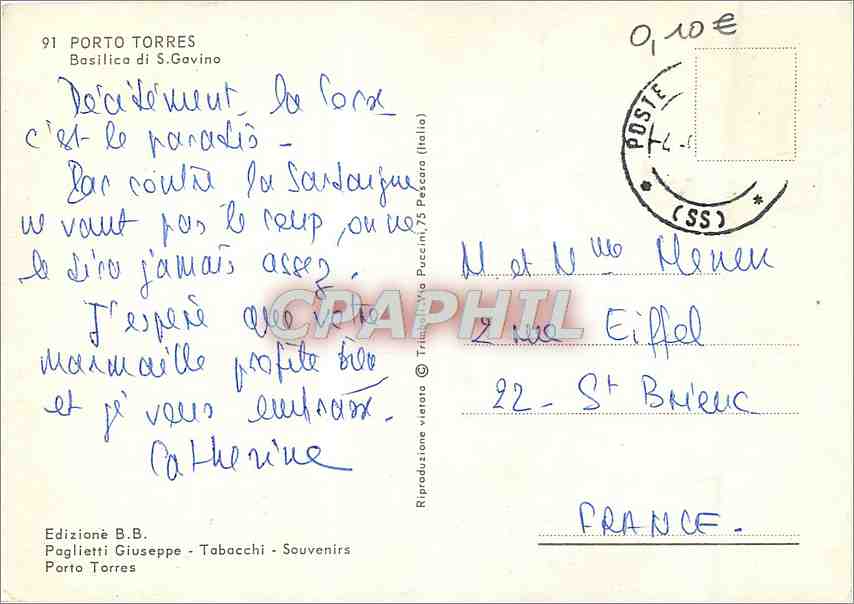 91 PORTO TORRES
Basilica di S.Gavino
0,10 €
POSTE
(SS)
Décidément la Corse
c'est le paradis -
Par contre la Sardaigne
ne vaut pas le coup, on ne
le dira jamais assez.
J'espère que votre
marmaille profite bien
et je vous embrasse.
Catherine
Riproduzione vietata © Trimboli, Via Puccini, 75 Pescara (Italia)
M et Mme
2 rue Eiffel
22 - St Brieuc
FRANCE -
CPAPHIL
Edizione B.B.
Paglietti Giuseppe - Tabacchi - Souvenirs
Porto Torres